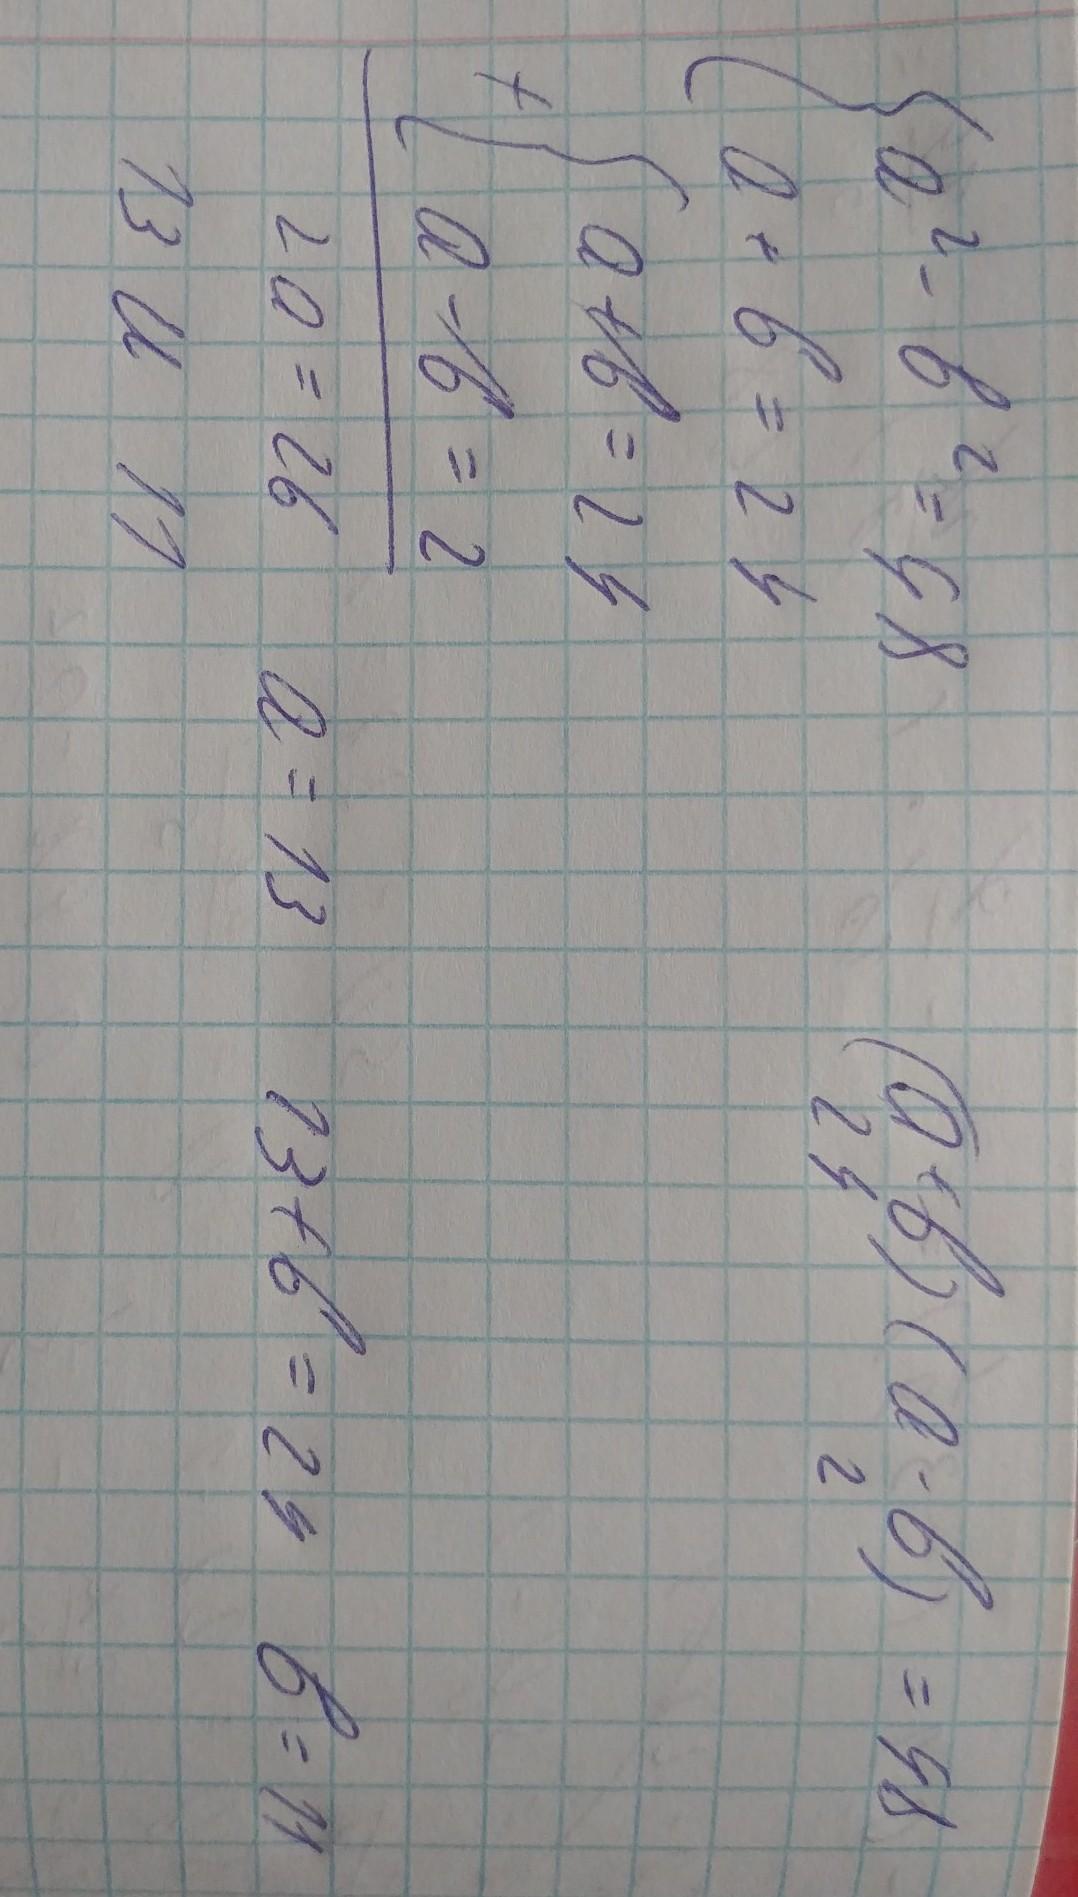 a² - b² = 48 (a+b)(a-b) = 48
a + b = 24 24 2
a+b = 24
+
a-b = 2
2a = 26 a = 13 13+b = 24 b = 11
13 и 11